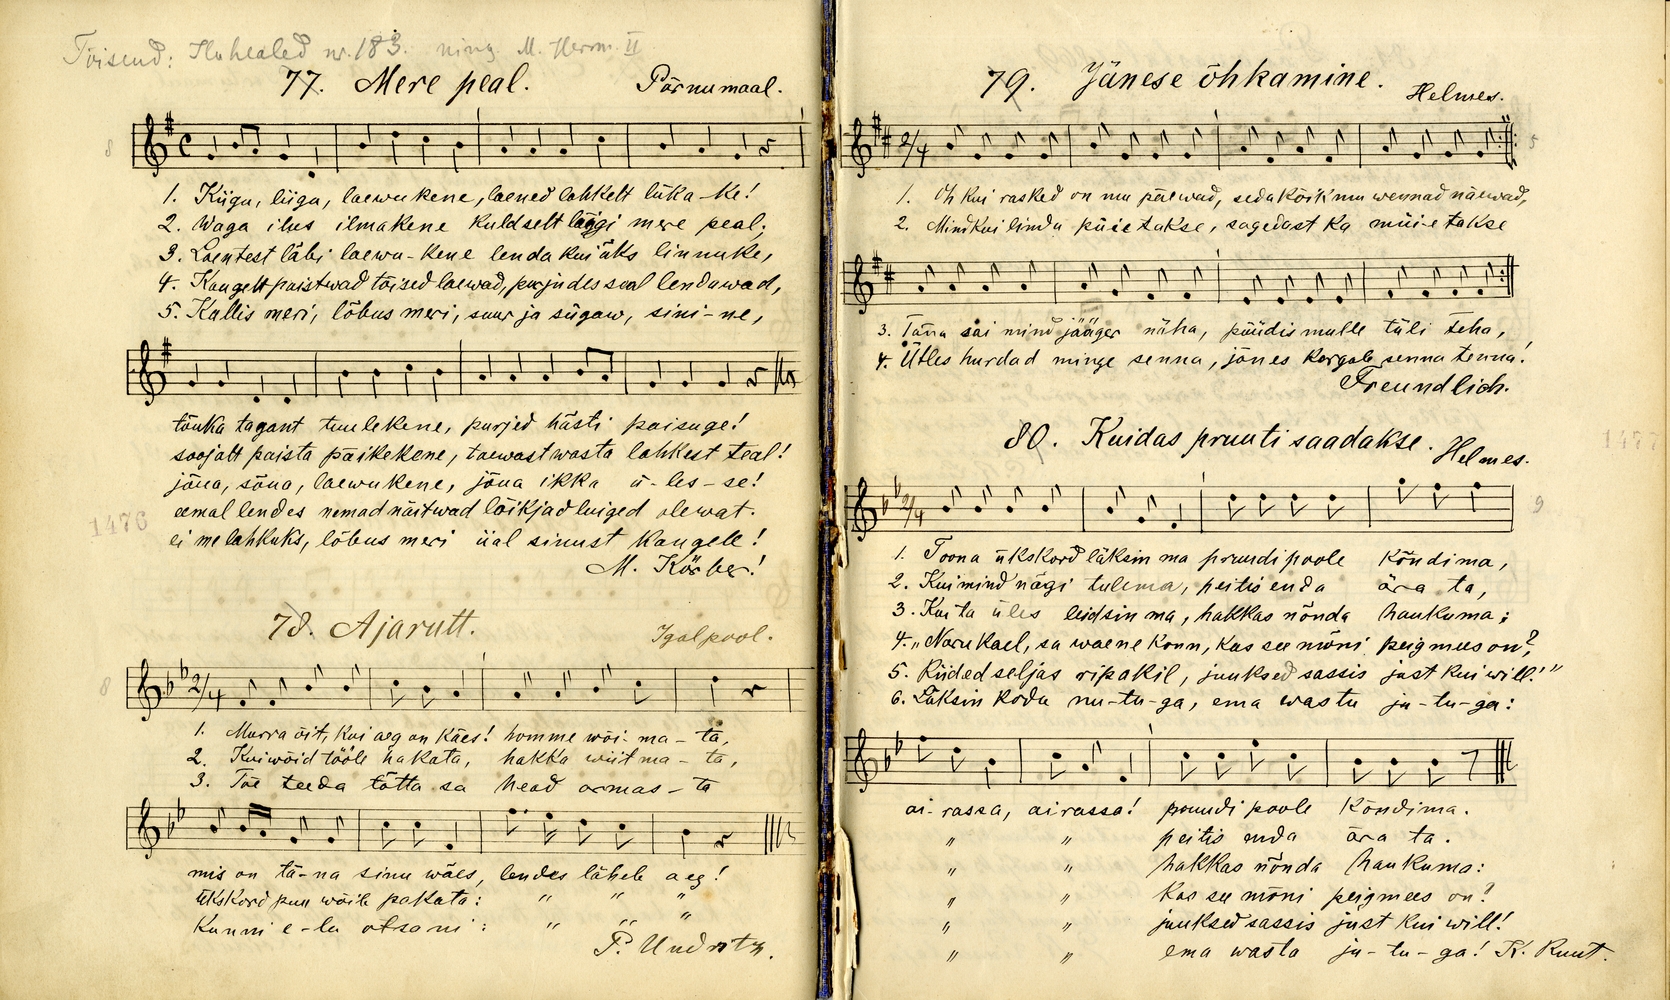 Tõisend: Iluhealed nr. 183. ning M. Herm. II
77. Mere peal. Pärnumaal.
8
1. Kiigu, liigu, laewukene, laened lahkelt lüka-ke!
2. Waga ilus ilmakene kuldselt läägi mere peal;
3. Laentest läbi laewu-kene lenda kui üks linnuke,
4. Kaugelt paistwad tõised laewad, purjudes seal lendawad,
5. Kallis meri, lõbus meri, suur ja sügaw, sini-ne,
tõuka tagant tuulekene, purjed hästi paisuge!
soojalt paista päikekene, taewast wasta lahkest teal!
jõua, sõua, laewukene, jõua ikka ü-les-se!
eemal lendes nemad näitwad lõikjad luiged olewat.
ei me lahkuks, lõbus meri iial sinust kaugele!
1476
M. Körber!
78. Ajarutt. Igalpool.
8
1. Murra õit, kui aeg on käes! homme wõi- ma-ta,
2. Kui wõid tööle hakata, hakka wiit ma-ta,
3. Töe teeda tõtta sa head armas-ta
mis on tä-na sinu wäes, lendes läheb aeg!
ükskord puu wõib pakata: " " "
Kunni e-lu otsani: " " "
P. Undritz.
79. Jänese õhkamine. Helmes.
5
1. Oh kui rasked on mu päewad, seda kõik mu wennad näewad,
2. Mind kui lindu püietakse, sagedast ka müi-e takse
3. Täna sai mind jääger näha, püüdis mulle tüli teha,
4. Ütles hurdad minge senna, jänes kargab senna tenna!
Freundlich.
80. Kuidas pruuti saadakse. Helmes.
1477
9
1. Toona ükskord läksin ma pruudi poole kõndima,
2. Kui mind nägi tulema, peitis enda ära ta,
3. Kui ta üles leidsin ma, hakkas nõnda haukuma:
4. „Narukael, sa waene konn, kas see mõni peigmees on?
5. Riided seljas ripakil, juuksed sassis just kui will!"
6. Läksin kodu nu-tu-ga, ema wastu ju-tu-ga:
ai-rassa, airassa! pruudi poole kõndima.
" " peitis enda ära ta.
" " hakkas nõnda haukuma:
" " kas see mõni peigmees on?
" " juuksed sassis just kui will!
" " ema wasta ju-tu-ga! K. Ruut.